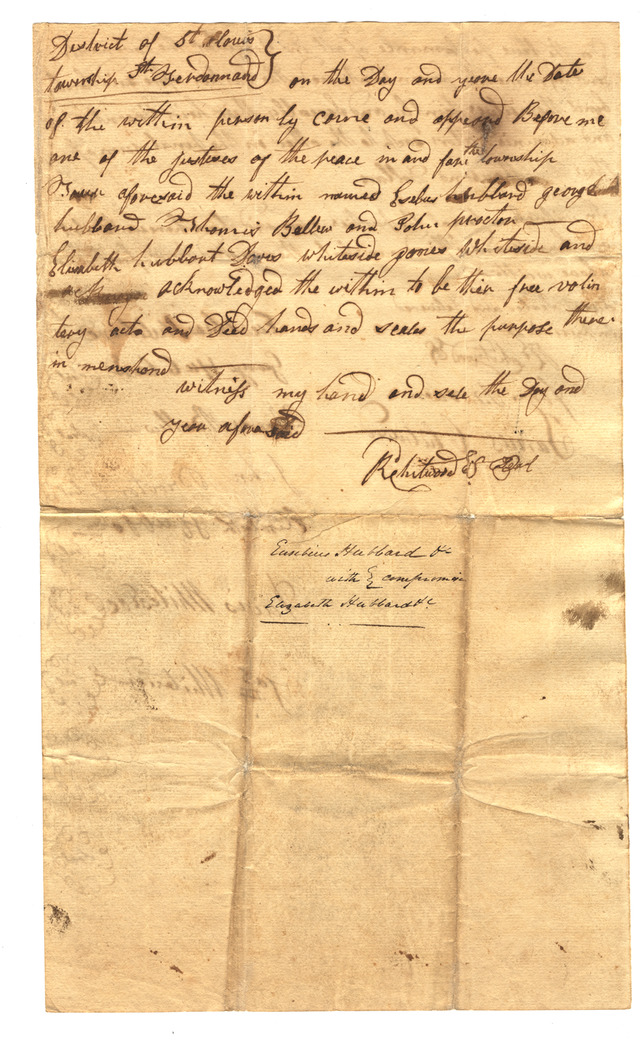 District of St Louis }
township St Ferdonnand } on the Day and yeare the Date
of the within personly came and appeard Before me
one of the justeses of the peace in and fore the township
aforesaid the within named Esebus hubbard george
hubband Thomis Bellew and John procton
Elizabeth hubbart Daves whiteside jones Whiteside and
acknowledged the within to be their free volin
tery acts and Deed hands and seales the purpose there
in menshand
witness my hand and sele the Day and
year afore said
Eusebius Hubbard &c
with compromise
Elizabeth Hubbard &c